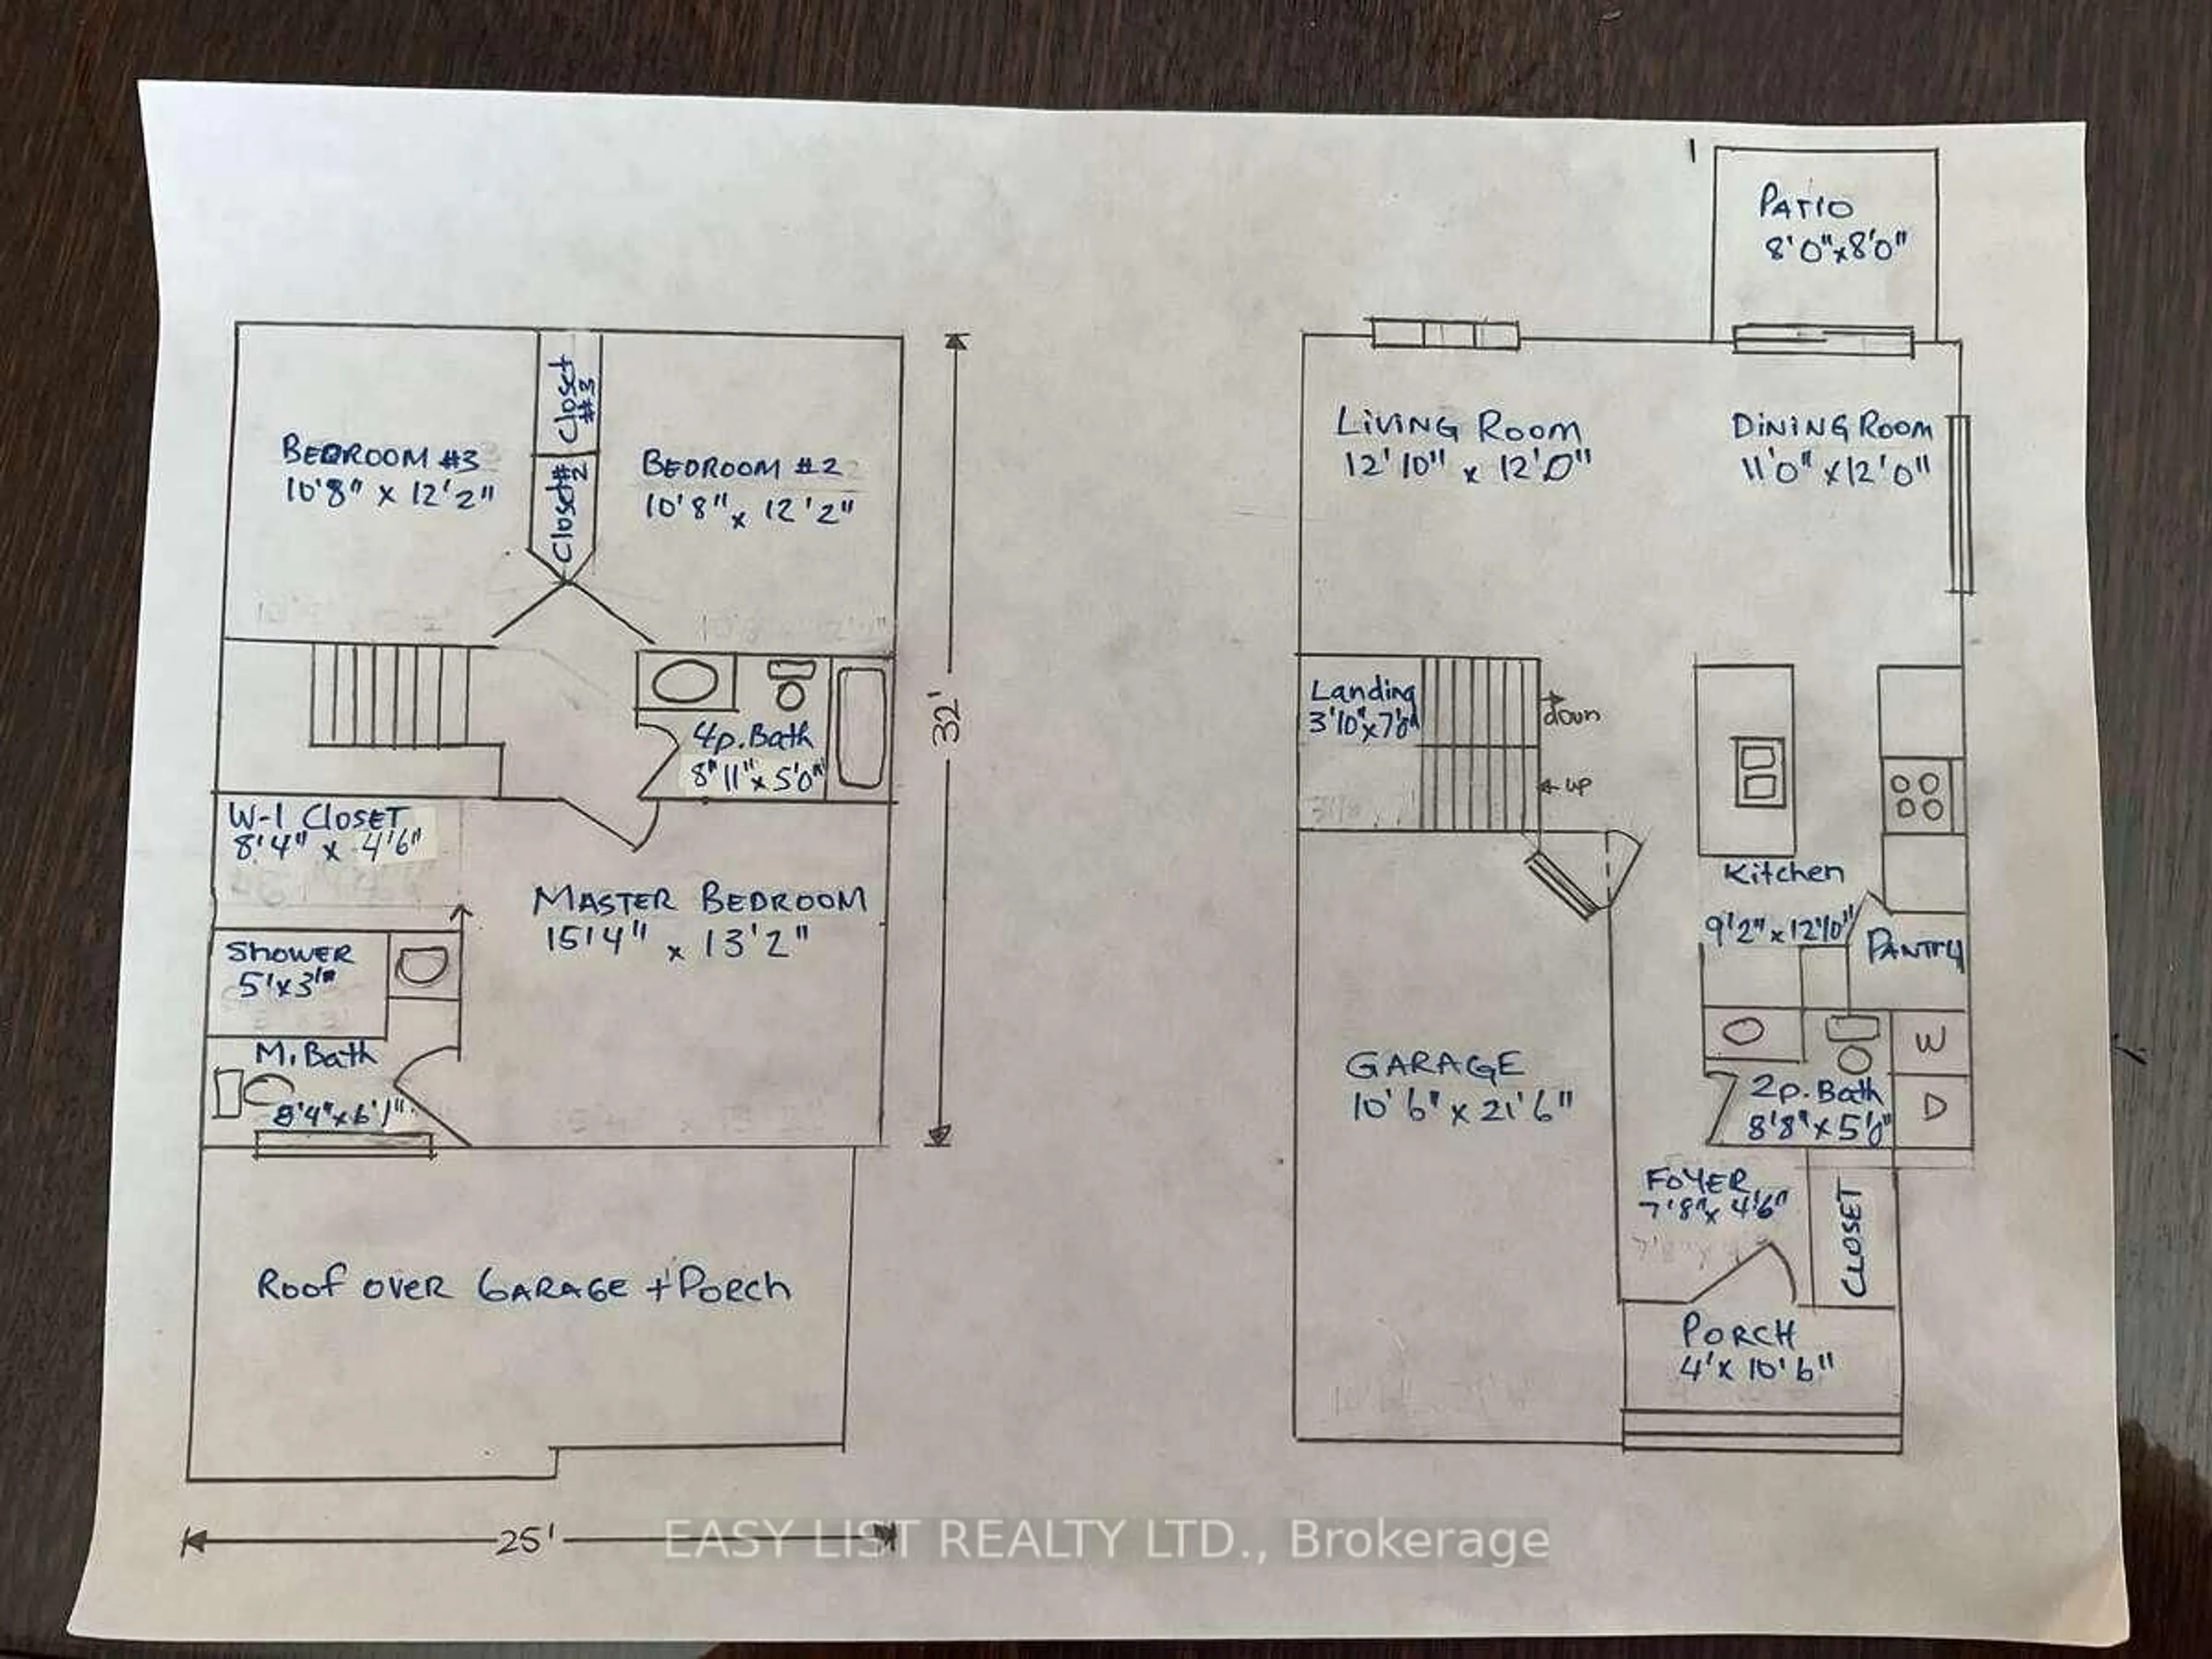 BEDROOM #3
10'8" x 12'2"
Closet #3
Closet #2
BEDROOM #2
10'8" x 12'2"
4p. Bath
8"11" x 5'0"
32'
W-I CLOSET
8'4" x 4'6"
MASTER BEDROOM
15'4" x 13'2"
SHOWER
5'x3'
M. Bath
8'4"x6'1"
Roof over GARAGE + PORCH
25'
PATIO
8'0"x8'0"
LIVING ROOM
12'10" x 12'0"
DINING ROOM
11'0" x 12'0"
Landing
3'10"x7'
down
up
Kitchen
9'2" x 12'10"
PANTRY
GARAGE
10'6" x 21'6"
W
D
2p. Bath
8'8" x 5'0"
FOYER
7'8"x 4'6"
CLOSET
PORCH
4'x 10'6"
EASY LIST REALTY LTD., Brokerage